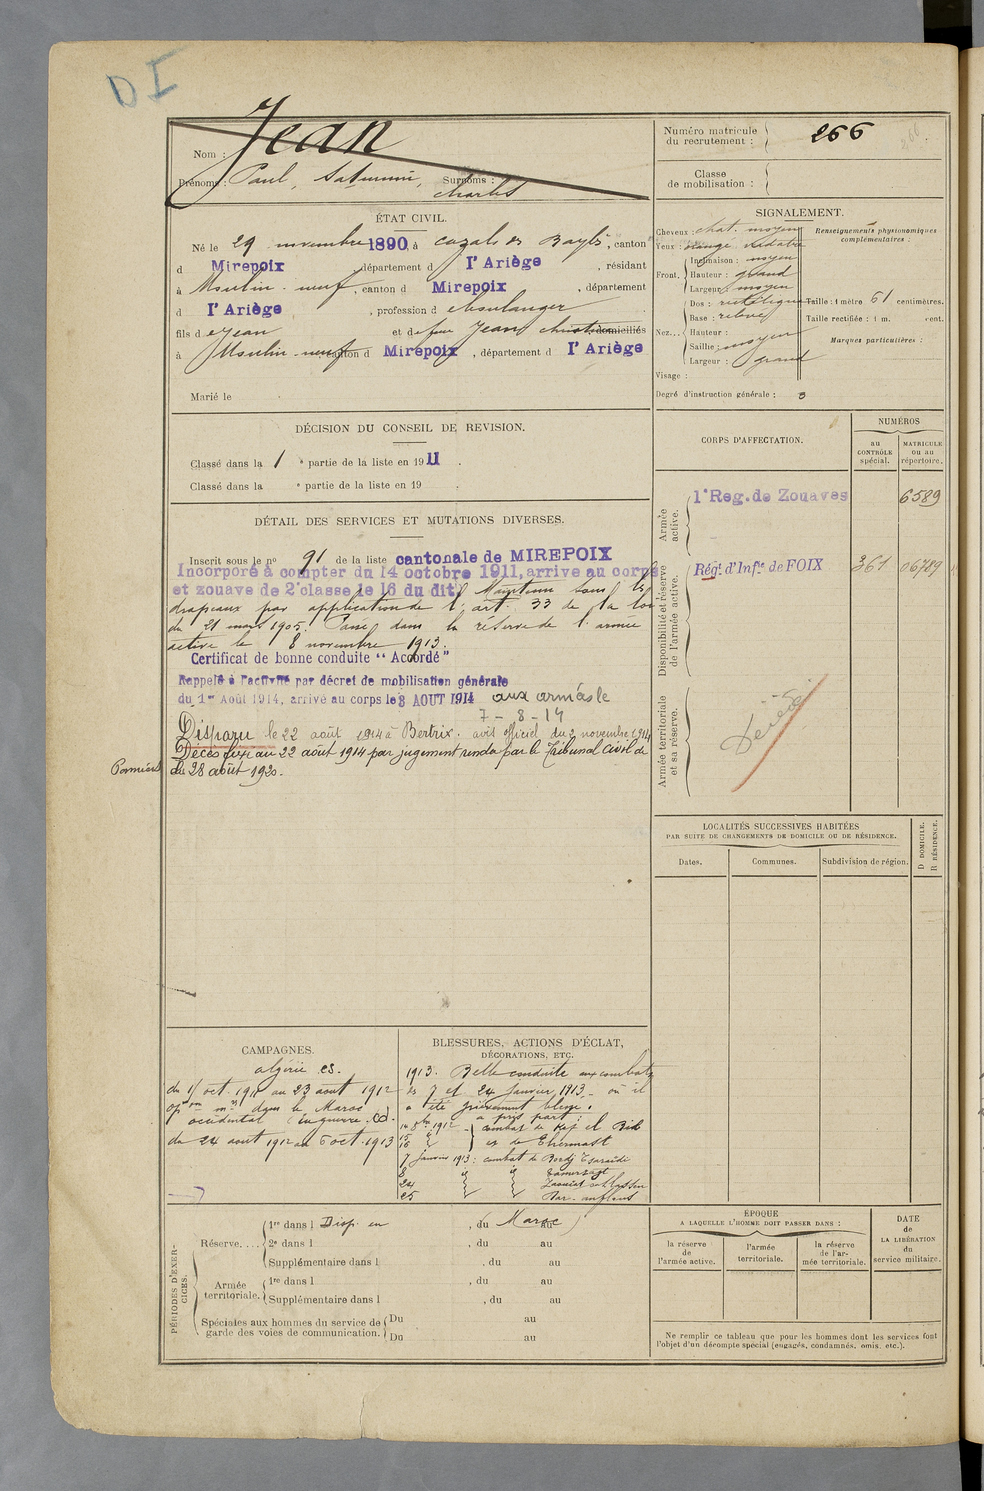 DI
Nom : Jean
Prénoms : Paul, Saturnin, Surnoms : Charles
Numéro matricule du recrutement : 266
Classe de mobilisation :
ÉTAT CIVIL.
Né le 29 novembre 1890, à Cazals des Bayls, canton
d Mirepoix, département d l'Ariège, résidant
à Moulin-neuf, canton d Mirepoix, département
d l'Ariège, profession d boulanger
fils d Jean et d feue Jean domiciliés
à Moulin-neuf canton d Mirepoix, département d l'Ariège
Marié le
SIGNALEMENT.
Cheveux : chat. moyen
Yeux : orangé
Front, Inclinaison : moyen
Hauteur : grand
Largeur : moyen
Nez... Dos : rectiligne
Base : relevé
Hauteur :
Saillie : moyen
Largeur : grand
Visage :
Renseignements physionomiques complémentaires :
Taille : 1 mètre 61 centimètres.
Taille rectifiée : 1 m. cent.
Marques particulières :
Degré d'instruction générale : 3
DÉCISION DU CONSEIL DE REVISION.
Classé dans la 1 e partie de la liste en 1911.
Classé dans la e partie de la liste en 19 .
CORPS D'AFFECTATION.
NUMÉROS
au CONTRÔLE spécial.
MATRICULE ou au répertoire.
Armée active.
1er Reg. de Zouaves 6589
Disponibilité et réserve de l'armée active.
Régt. d'Infie de FOIX 361 06789
Armée territoriale et sa réserve.
Décédé
DÉTAIL DES SERVICES ET MUTATIONS DIVERSES.
Inscrit sous le no 91 de la liste cantonale de MIREPOIX
Incorporé à compter du 14 octobre 1911, arrive au corps
et zouave de 2e classe le 16 du dit. Maintenu sous les
drapeaux par application de l'art. 33 de la loi
du 21 mars 1905. Passé dans la réserve de l'armée
active le 8 novembre 1913.
Certificat de bonne conduite "Accordé"
Rappelé à l'activité par décret de mobilisation générale
du 1er Août 1914, arrivé au corps le 3 AOUT 1914 aux armées le
7-8-14
Disparu le 22 août 1914 à Bertrix. avis officiel du 3 novembre 1914
Décès fixé au 22 août 1914 par jugement rendu par le Tribunal civil de
Pamiers le 28 août 1920.
LOCALITÉS SUCCESSIVES HABITÉES
PAR SUITE DE CHANGEMENTS DE DOMICILE OU DE RÉSIDENCE.
Dates.
Communes.
Subdivision de région.
D DOMICILE.
R RÉSIDENCE.
CAMPAGNES.
Algérie
du 1 oct. 1911 au 23 août 1912
dans le Maroc
occidental En guerre
du 24 août 1912 au 6 oct. 1913
BLESSURES, ACTIONS D'ÉCLAT,
DÉCORATIONS, ETC.
1913. Belle conduite aux combats
des 7 et 24 Janvier 1913 où il
a été grièvement blessé.
a pris part :
14 8bre 1912 combat de
15
16
7 Janvier 1913 : combat de Bordj
8
24
25
PÉRIODES D'EXERCICES.
Réserve.... 1re dans l Disp. en , du Maroc au
2e dans l , du au
Supplémentaire dans l , du au
Armée territoriale. 1re dans l , du au
Supplémentaire dans l , du au
Spéciales aux hommes du service de garde des voies de communication. Du au
Du au
ÉPOQUE
A LAQUELLE L'HOMME DOIT PASSER DANS :
la réserve de l'armée active.
l'armée territoriale.
la réserve de l'armée territoriale.
DATE de LA LIBÉRATION du service militaire.
Ne remplir ce tableau que pour les hommes dont les services font
l'objet d'un décompte spécial (engagés, condamnés, omis, etc.).